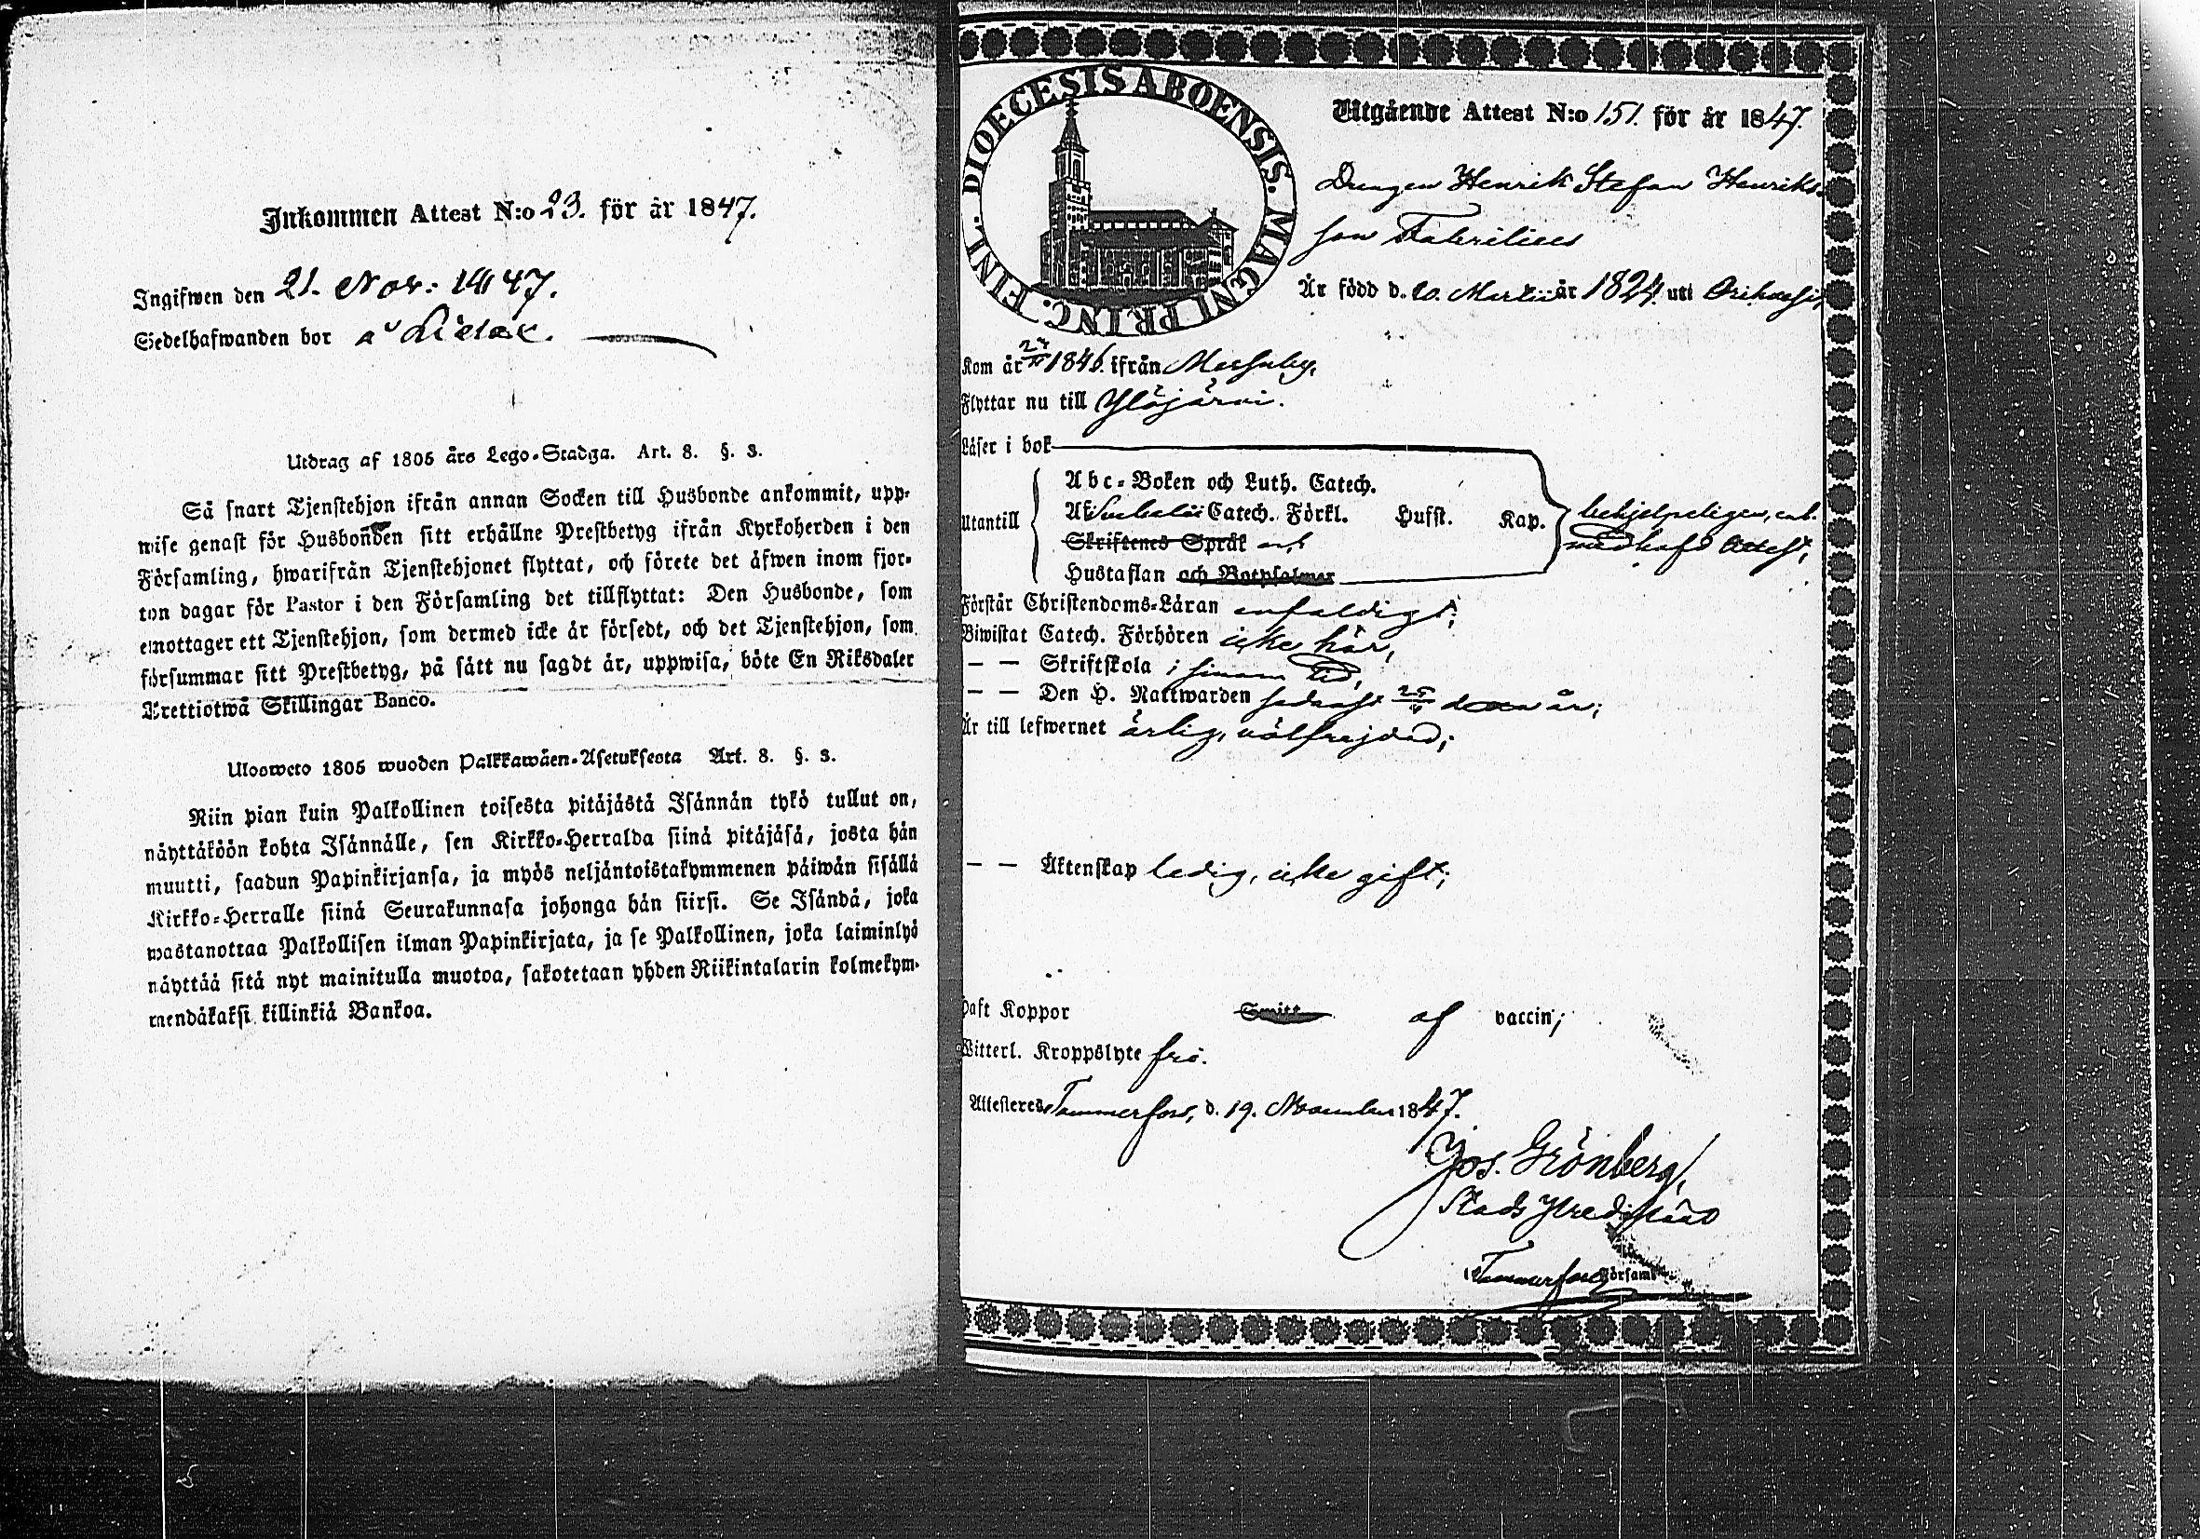 Inkommen Attest N:o 23. för år 1847.
Ingifwen den 21. Nov: 1847.
Sedelhafwanden bor å
Utdrag af 1805 års Lego-Stadga. Art. 8. §. 3.
Så snart Tjenstehjon ifrån annan Socken till Husbonde ankommit, upp-
wise genast för Husbonden sitt erhållne Prestbetyg ifrån Kyrkoherden i den
Församling, hwarifrån Tjenstehjonet flyttat, och förete det äfwen inom fjor-
ton dagar för Pastor i den Församling det tillflyttat: Den Husbonde, som
emottager ett Tjenstehjon, som dermed icke är försedt, och det Tjenstehjon, som
försummar sitt Prestbetyg, på sätt nu sagdt är, uppwisa, böte En Riksdaler
Trettiotwå Skillingar Banco.
Ulosweto 1805 wuoden Palkkawäen-Asetuksesta Art. 8. §. 3.
Niin pian kuin Palkollinen toisesta pitäjästä Isännän tykö tullut on,
näyttäköön kohta Isännälle, sen Kirkko-Herralda siinä pitäjäsä, josta hän
muutti, saadun Papinkirjansa, ja myös neljäntoistakymmenen päiwän sisällä
Kirkko-Herralle siinä Seurakunnasa johonga hän siirsi. Se Isändä, joka
wastanottaa Palkollisen ilman Papinkirjata, ja se Palkollinen, joka laiminlyö
näyttää sitä nyt mainitulla muotoa, sakotetaan yhden Riikintalarin kolmekym-
mendäkaksi killinkiä Bankoa.
DIOECESIS ABOENSIS. MAGNI PRINC. FINL.
Utgående Attest N:o 151. för år 1847.
Drengen Henrik Stefan Henriks-
son
Är född d. 20. Martii år 1824 uti Orihvesi,
Kom år 1846 ifrån Messuby,
Flyttar nu till Ylöjärvi.
Läser i bok
Utantill
Abc-Boken och Luth. Catech.
Af Svebelii Catech. Förkl. Hufst. Kap.
behjelpeligen, enl.
Skriftenes Språk och
medhafd Attest,
Hustaflan och Botpsalmer
Förstår Christendoms-Läran enfaldigt;
Biwistat Catech. Förhören icke här,
— — Skriftskola i sinom tid,
— — Den H. Nattwarden sednast 25 år;
Är till lefwernet ärlig, välfrejdad;
— — Äktenskap ledig, icke gift;
Haft Koppor Smitt af vaccin;
Witterl. Kroppslyte fri.
Attesteres Tammerfors, d. 19. November 1847.
Jos. Grönberg,
Stads
Tammerfors Församl.